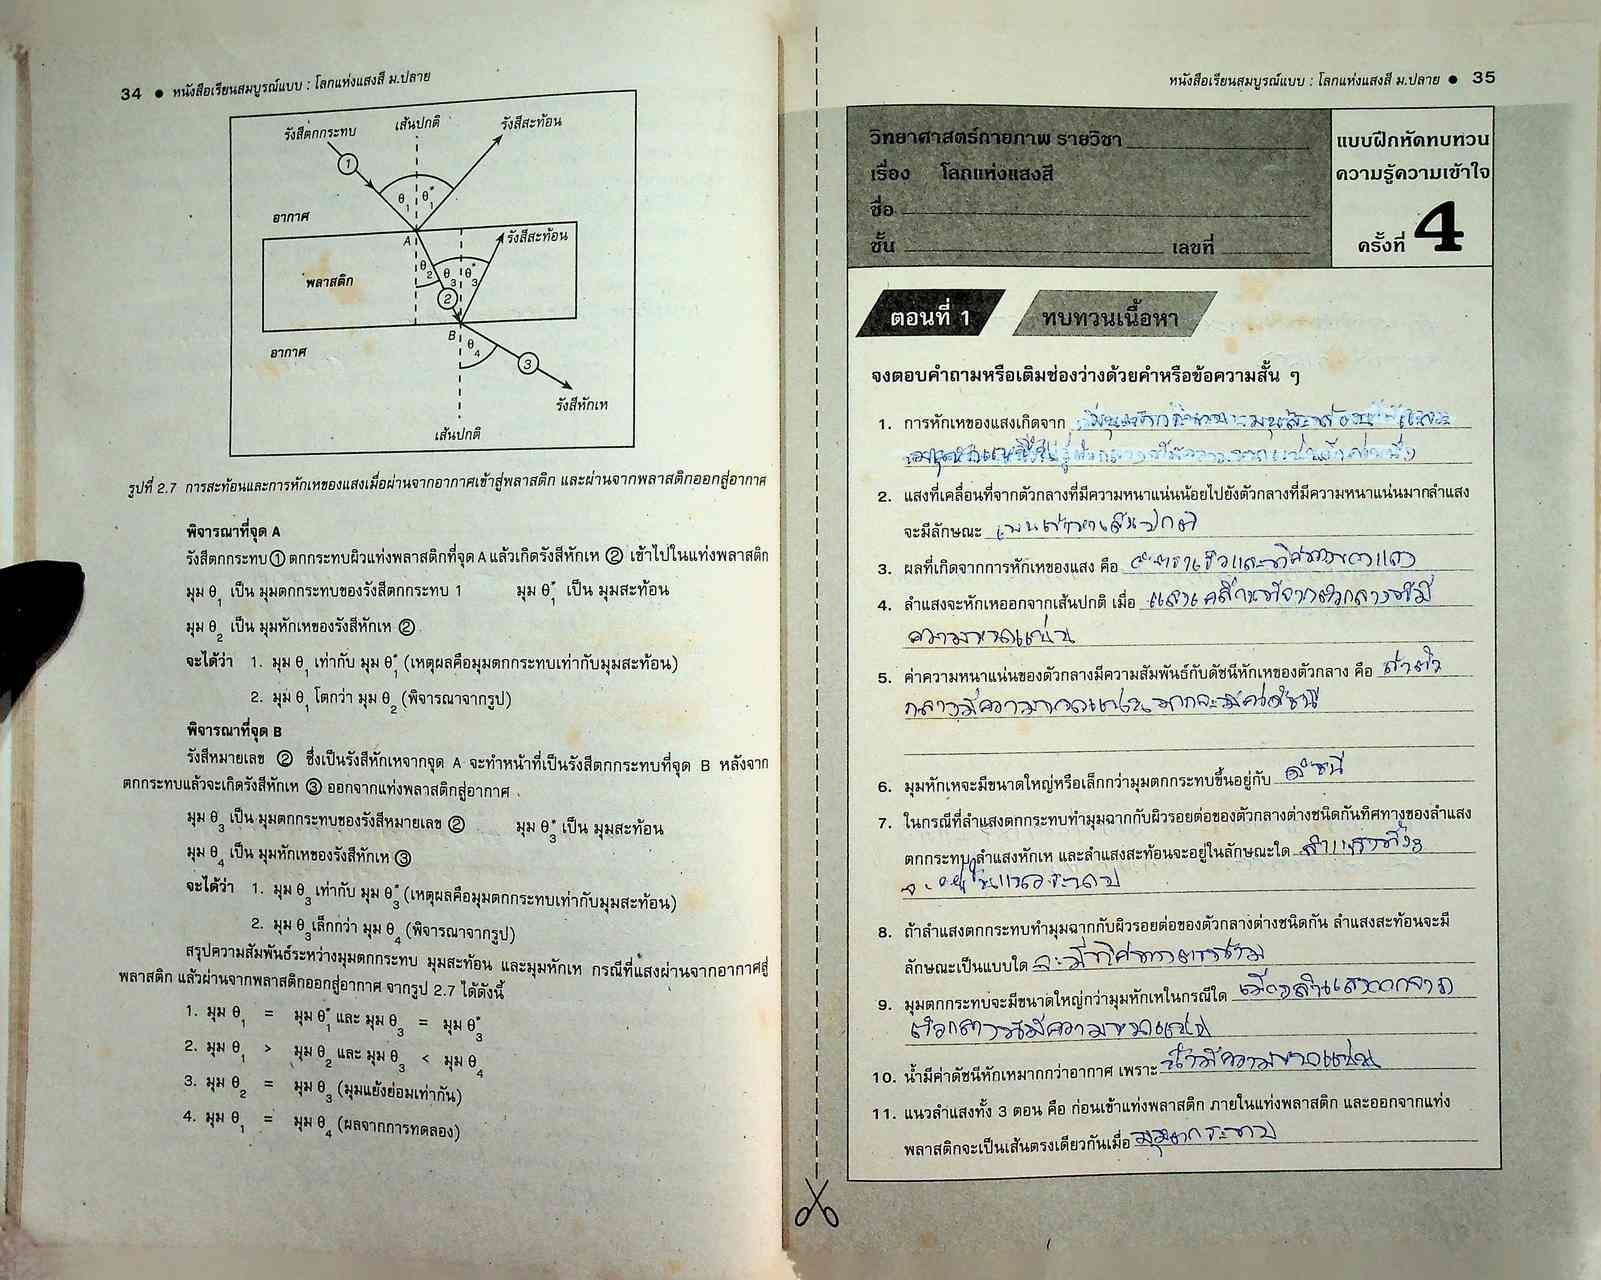 34 ● หนังสือเรียนสมบูรณ์แบบ : โลกแห่งแสงสี ม.ปลาย
รังสีตกกระทบ
เส้นปกติ
รังสีสะท้อน
1
θ1 θ*1
อากาศ
A
รังสีสะท้อน
พลาสติก
θ2 θ3 θ*3
2
B
อากาศ
θ4
3
รังสีหักเห
เส้นปกติ
รูปที่ 2.7 การสะท้อนและการหักเหของแสงเมื่อผ่านจากอากาศเข้าสู่พลาสติก และผ่านจากพลาสติกออกสู่อากาศ
พิจารณาที่จุด A
รังสีตกกระทบ ① ตกกระทบผิวแท่งพลาสติกที่จุด A แล้วเกิดรังสีหักเห ② เข้าไปในแท่งพลาสติก
มุม θ1 เป็น มุมตกกระทบของรังสีตกกระทบ 1 มุม θ*1 เป็น มุมสะท้อน
มุม θ2 เป็น มุมหักเหของรังสีหักเห ②
จะได้ว่า 1. มุม θ1 เท่ากับ มุม θ*1 (เหตุผลคือมุมตกกระทบเท่ากับมุมสะท้อน)
2. มุม θ1 โตกว่า มุม θ2 (พิจารณาจากรูป)
พิจารณาที่จุด B
รังสีหมายเลข ② ซึ่งเป็นรังสีหักเหจากจุด A จะทำหน้าที่เป็นรังสีตกกระทบที่จุด B หลังจาก
ตกกระทบแล้วจะเกิดรังสีหักเห ③ ออกจากแท่งพลาสติกสู่อากาศ
มุม θ3 เป็น มุมตกกระทบของรังสีหมายเลข ② มุม θ*3 เป็น มุมสะท้อน
มุม θ4 เป็น มุมหักเหของรังสีหักเห ③
จะได้ว่า 1. มุม θ3 เท่ากับ มุม θ*3 (เหตุผลคือมุมตกกระทบเท่ากับมุมสะท้อน)
2. มุม θ3 เล็กกว่า มุม θ4 (พิจารณาจากรูป)
สรุปความสัมพันธ์ระหว่างมุมตกกระทบ มุมสะท้อน และมุมหักเห กรณีที่แสงผ่านจากอากาศสู่
พลาสติก แล้วผ่านจากพลาสติกออกสู่อากาศ จากรูป 2.7 ได้ดังนี้
1. มุม θ1 = มุม θ*1 และ มุม θ3 = มุม θ*3
2. มุม θ1 > มุม θ2 และ มุม θ3 < มุม θ4
3. มุม θ2 = มุม θ3 (มุมแย้งย่อมเท่ากัน)
4. มุม θ1 = มุม θ4 (ผลจากการทดลอง)
หนังสือเรียนสมบูรณ์แบบ : โลกแห่งแสงสี ม.ปลาย ● 35
วิทยาศาสตร์กายภาพ รายวิชา
เรื่อง โลกแห่งแสงสี
ชื่อ
ชั้น เลขที่
แบบฝึกหัดทบทวน
ความรู้ความเข้าใจ
ครั้งที่ 4
ตอนที่ 1 ทบทวนเนื้อหา
จงตอบคำถามหรือเติมช่องว่างด้วยคำหรือข้อความสั้น ๆ
1. การหักเหของแสงเกิดจาก
2. แสงที่เคลื่อนที่จากตัวกลางที่มีความหนาแน่นน้อยไปยังตัวกลางที่มีความหนาแน่นมากลำแสง
จะมีลักษณะ เบนเข้าหาเส้นปกติ
3. ผลที่เกิดจากการหักเหของแสง คือ
4. ลำแสงจะหักเหออกจากเส้นปกติ เมื่อ แสงเคลื่อนที่จากตัวกลางที่มี
ความหนาแน่น
5. ค่าความหนาแน่นของตัวกลางมีความสัมพันธ์กับดัชนีหักเหของตัวกลาง คือ ถ้าตัว
กลางมีความหนาแน่นมากจะมีค่าดัชนี
6. มุมหักเหจะมีขนาดใหญ่หรือเล็กกว่ามุมตกกระทบขึ้นอยู่กับ ดัชนี
7. ในกรณีที่ลำแสงตกกระทบทำมุมฉากกับผิวรอยต่อของตัวกลางต่างชนิดกันทิศทางของลำแสง
ตกกระทบ ลำแสงหักเห และลำแสงสะท้อนจะอยู่ในลักษณะใด ลำแสงทั้ง3
จะอยู่ในแนว
8. ถ้าลำแสงตกกระทบทำมุมฉากกับผิวรอยต่อของตัวกลางต่างชนิดกัน ลำแสงสะท้อนจะมี
ลักษณะเป็นแบบใด จะมีทิศทางตรงข้าม
9. มุมตกกระทบจะมีขนาดใหญ่กว่ามุมหักเหในกรณีใด เมื่อลำแสงออกจาก
ตัวกลางที่มีความหนาแน่น
10. น้ำมีค่าดัชนีหักเหมากกว่าอากาศ เพราะ น้ำมีความหนาแน่น
11. แนวลำแสงทั้ง 3 ตอน คือ ก่อนเข้าแท่งพลาสติก ภายในแท่งพลาสติก และออกจากแท่ง
พลาสติกจะเป็นเส้นตรงเดียวกันเมื่อ มุมตกกระทบ